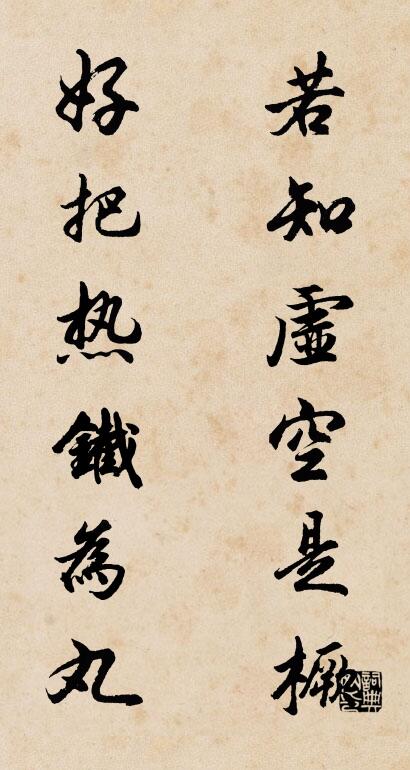 若知虚空是橛
好把热鐵為丸